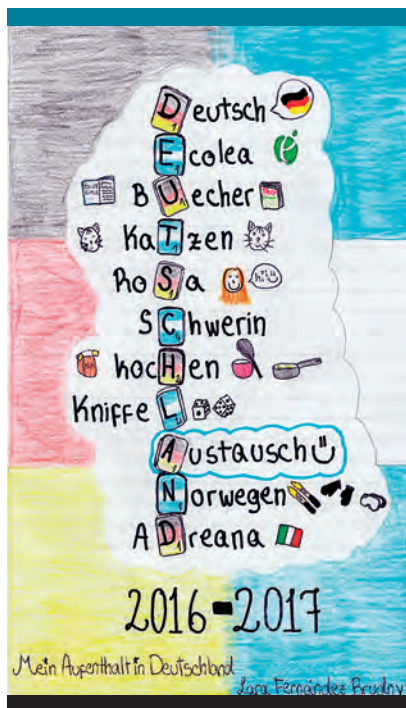 Deutsch
Ecolea
BUecher
KaTzen
RoSa hi
SChwerin
kocHen
KniffeL
Austausch
Norwegen
ADreana
2016-2017
Mein Aufenthalt in Deutschland
Lara Fernández Brudny